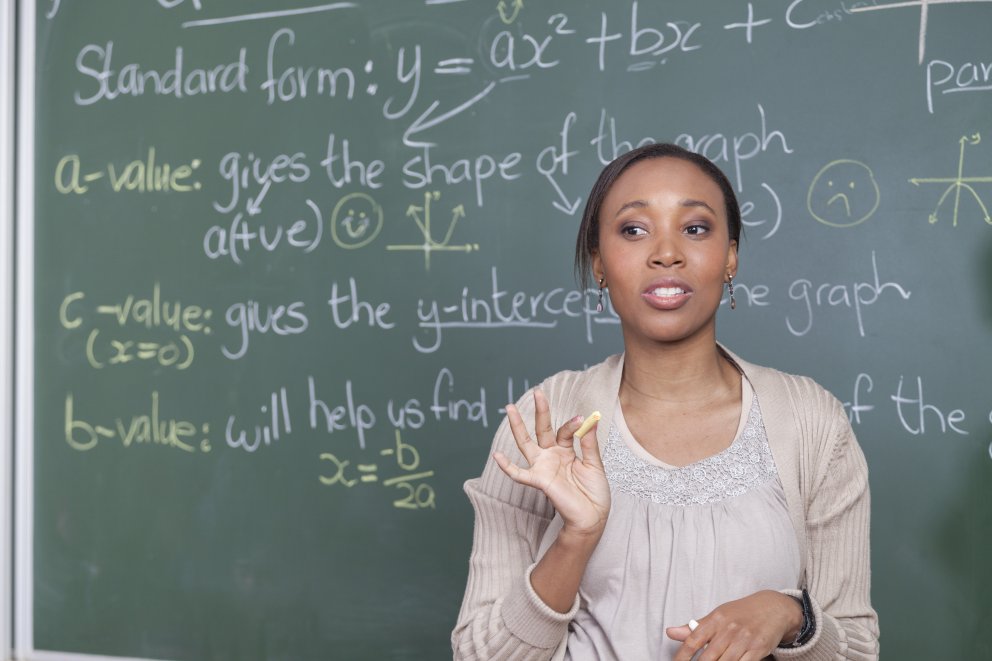 Standard form: y = ax² + bx + c
par
a-value: gives the shape of the graph
a(+ve)
y
y
c-value: gives the y-intercept graph
(x=0)
b-value: will help us find of the
x = -b/2a